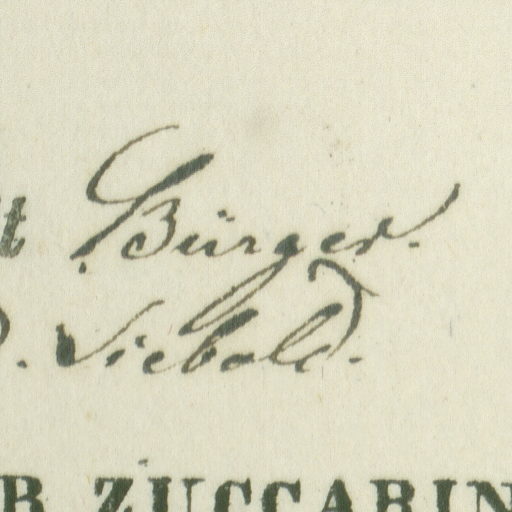 t Bürger.
. Siebold.
B ZUCCARIN